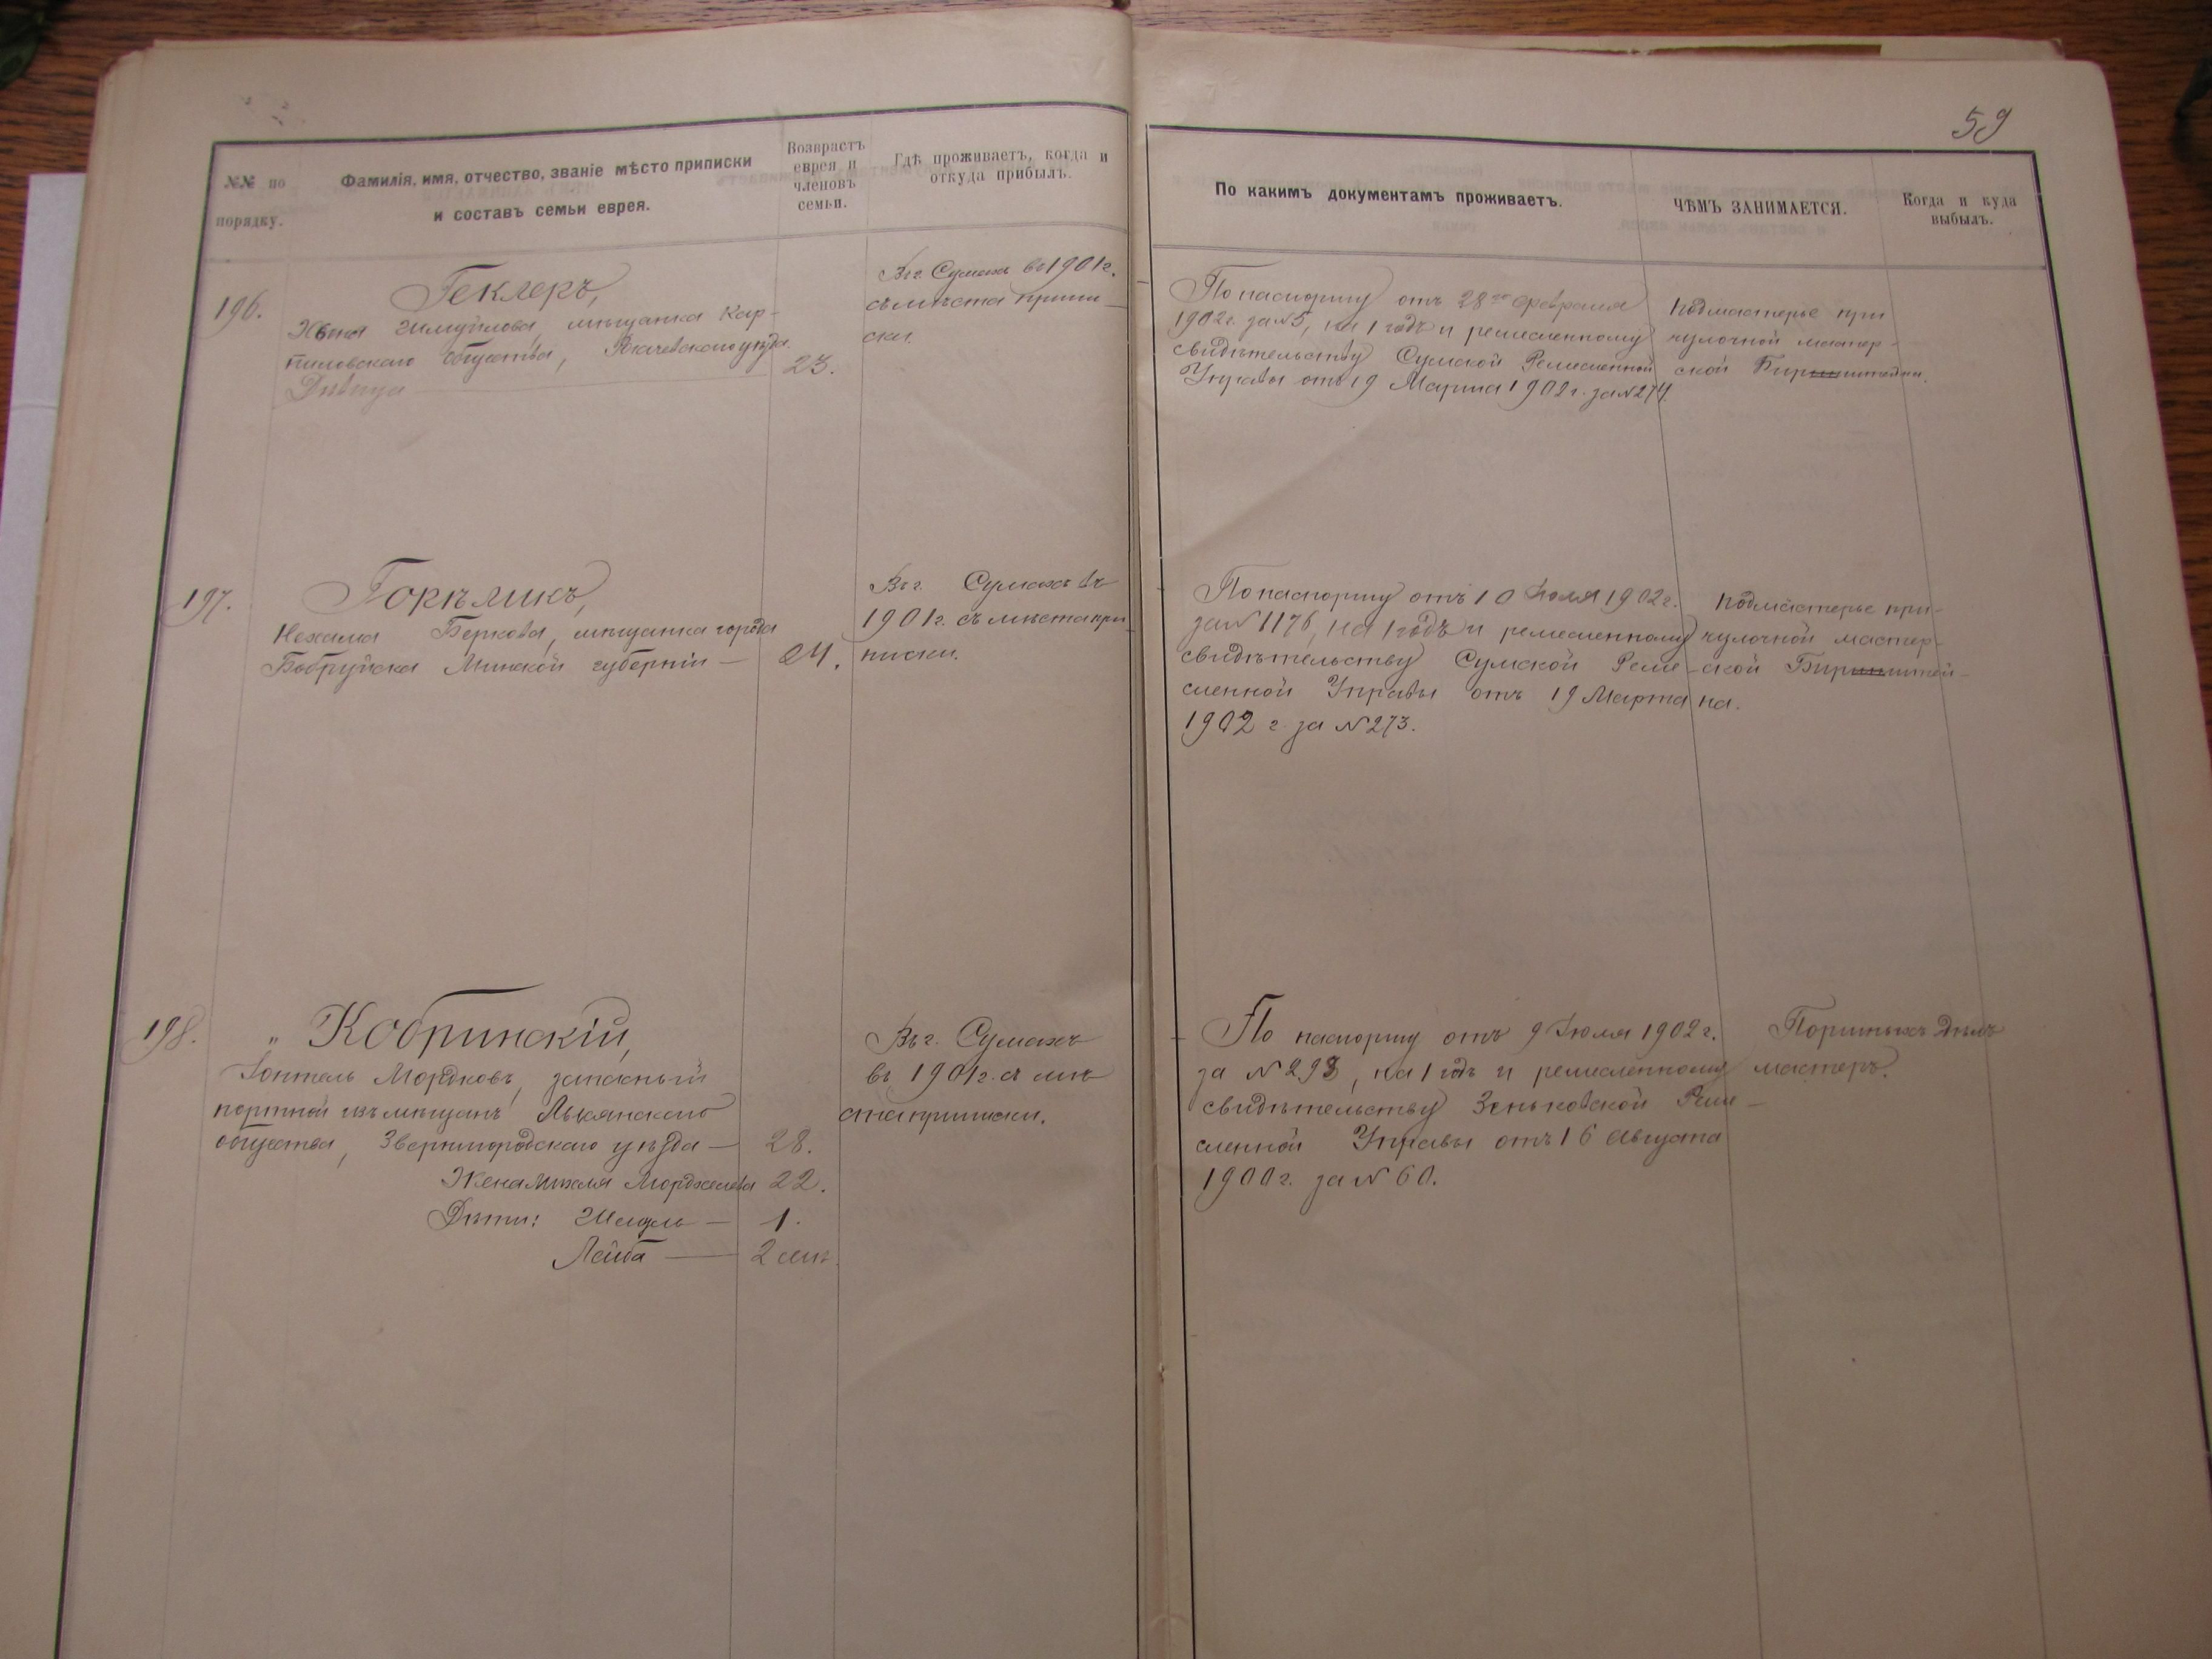 59
№№ по порядку.
Фамилія, имя, отчество, званіе мѣсто приписки
и составъ семьи еврея.
Возврастъ
еврея и
членовъ
семьи.
Гдѣ проживаетъ, когда и
откуда прибылъ.
По какимъ документамъ проживаетъ.
ЧѢМЪ ЗАНИМАЕТСЯ.
Когда и куда
выбылъ.
196.
Геклеръ,
мѣщанка Кар-
пиловскаго общества, Рогачевскаго уѣзда
Дѣвица
23.
Въ г. Сумахъ въ 1901 г.
съ мѣста припи-
ски.
По паспорту отъ 28го Февраля
1902 г. за № 5, на 1 годъ и ремесленному
свидѣтельству Сумской Ремесленной
Управы отъ 19 Марта 1902 г. за № 274.
Подмастерье при
чулочной мастер-
ской
197.
Горѣликъ,
Нехама Беркова, мѣщанка города
Бобруйска Минской губерніи —
24.
Въ г. Сумахъ въ
1901 г. съ мѣста при-
писки.
По паспорту отъ 10 Іюля 1902 г.
за № 1176, на 1 годъ и ремесленному
свидѣтельству Сумской Реме-
сленной Управы отъ 19 Марта
1902 г. за № 273.
Подмастерье при
чулочной мастер-
ской
на.
198.
„ Кобринскій,
Мордковъ, запасный
портной изъ мѣщанъ Лысянскаго
общества, Звенигородскаго уѣзда —
28.
Жена
22.
Дѣти: —
1.
Лейба —
2 мѣс.
Въ г. Сумахъ
въ 1901 г. съ мѣ-
ста приписки.
По паспорту отъ 9 Іюля 1902 г.
за № 293, на 1 годъ и ремесленному
свидѣтельству Зеньковской Реме-
сленной Управы отъ 16 Августа
1900 г. за № 60.
Портныхъ дѣлъ
мастеръ.